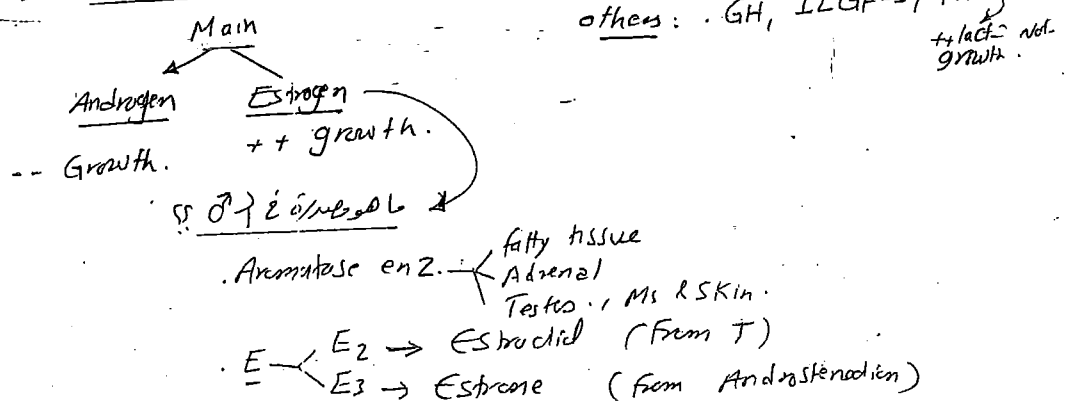 Main
others: . GH,
++ lact- Not
growth.
Androgen Estrogen
-- Growth. ++ growth.
؟؟ ♂
. Aromatase enz.
fatty tissue
Adrenal
Testes ., Ms & Skin.
. E
E2 → Estradiol (from T)
E3 → Estrone (from Androstenedion)